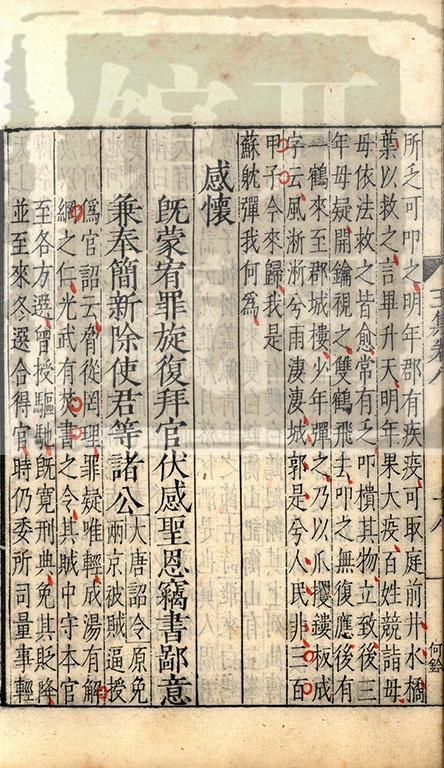 所乏可叩之明年郡有疾疫可取庭前井水橘
葉以救之言畢升天明年果大疫百姓競詣母
母依法救之皆愈常有乏叩樻其物立致後三
年母疑開鑰視之雙鶴飛去叩之無復應後有
一鶴來至郡城樓少年彈之乃以爪攫鏤板成
字云風淅淅兮雨淒淒城郭是兮人民非三百
甲子今來歸我是
蘇躭彈我何為
感懷
既蒙宥罪旋復拜官伏感聖恩竊書鄙意
兼奉簡新除使君等諸公
大唐詔令原免
兩京被賊逼授
爲官詔云脅從罔理罪疑唯輕成湯有解
網之仁光武有焚書之令其賊中守本官
至各方選曾授驅馳既寬刑典免其貶降
並至來冬選合得官時仍委所司量事輕